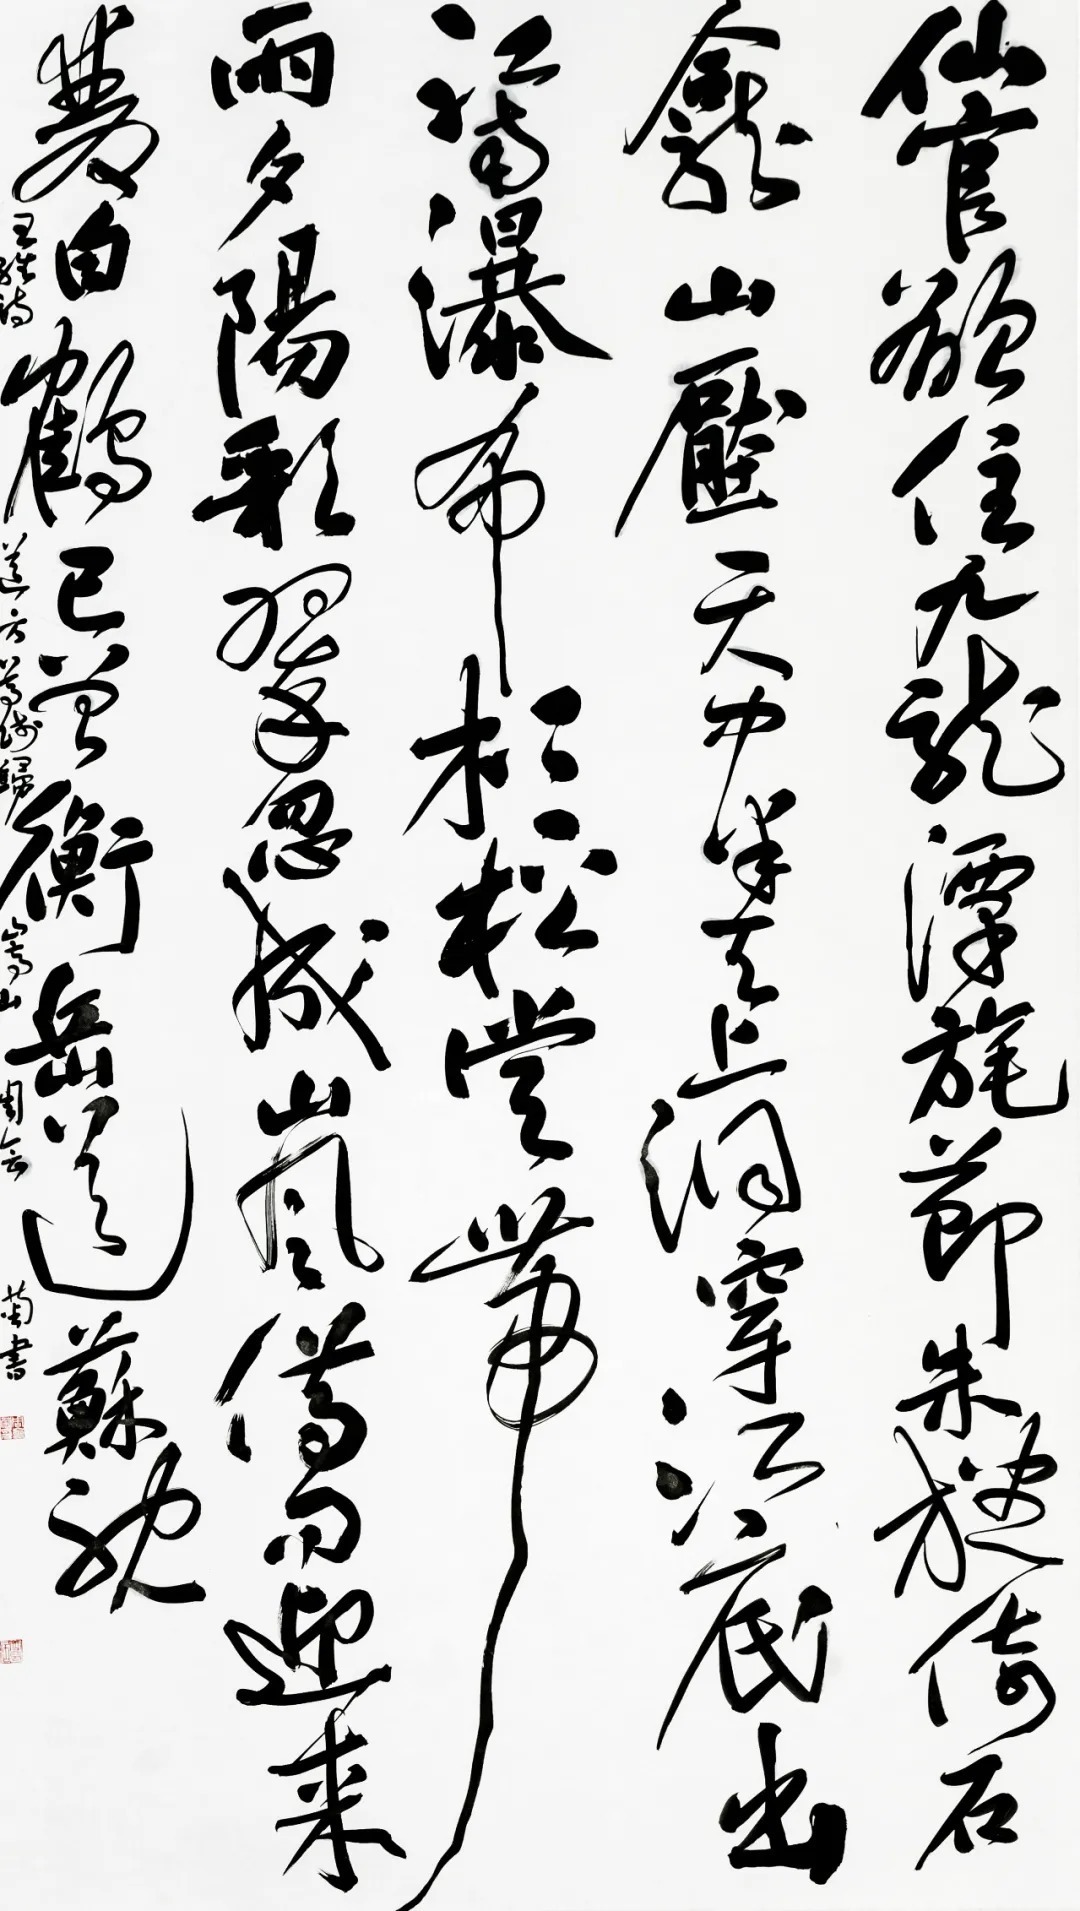 仙官欲住九龍潭旄節朱旛倚石
龕山壓天中半天上洞穿江底出
江南瀑布杉松嘗帶
雨夕陽彩翠忽成嵐借問迎来
雙白鶴已曾衡岳送蘇耽
王維詩送方尊師歸嵩山周菊書